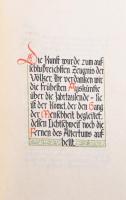 Die Kunst wurde zum auf=
schlußreichsten Zeugnis der
Völker. Ihr verdanken wir
die frühesten Auskünfte
über die Jahrtausende – sie
ist der Komet, der den Gang
der Menschheit begleitet,
dessen Lichtschweif noch die
Fernen des Altertums auf=
hellt.